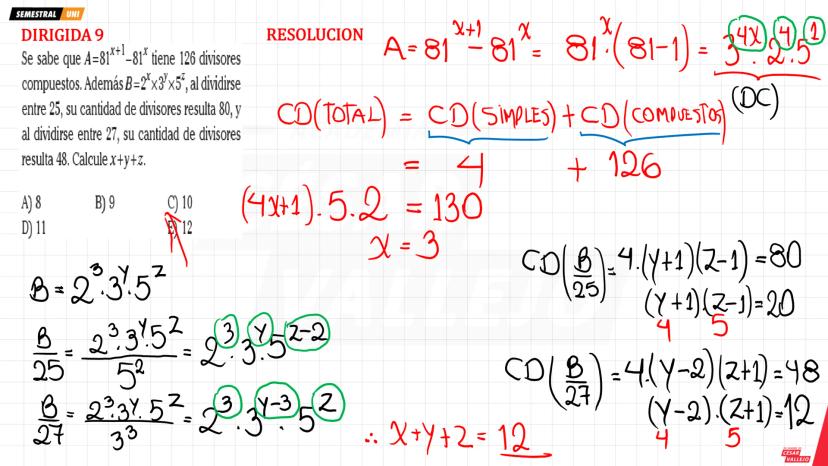 SEMESTRAL UNI
DIRIGIDA 9
Se sabe que A=81^{x+1}–81^x tiene 126 divisores
compuestos. Además B=2^x×3^y×5^z, al dividirse
entre 25, su cantidad de divisores resulta 80, y
al dividirse entre 27, su cantidad de divisores
resulta 48. Calcule x+y+z.
A) 8 B) 9 C) 10
D) 11 E) 12
RESOLUCION
A = 81^{x+1} - 81^x = 81^x.(81-1) = 3^{4x}.2^4.5^1
(DC)
CD(TOTAL) = CD(SIMPLES) + CD(COMPUESTOS)
= 4 + 126
(4x+1).5.2 = 130
x = 3
B = 2^3.3^y.5^z
B/25 = 2^3.3^y.5^z/5^2 = 2^3.3^y.5^{z-2}
B/27 = 2^3.3^y.5^z/3^3 = 2^3.3^{y-3}.5^z
CD(B/25) = 4.(y+1)(z-1) = 80
(y+1).(z-1) = 20
4 5
CD(B/27) = 4.(y-2)(z+1) = 48
(y-2).(z+1) = 12
4 5
∴ x+y+z = 12
CESAR
VALLEJO